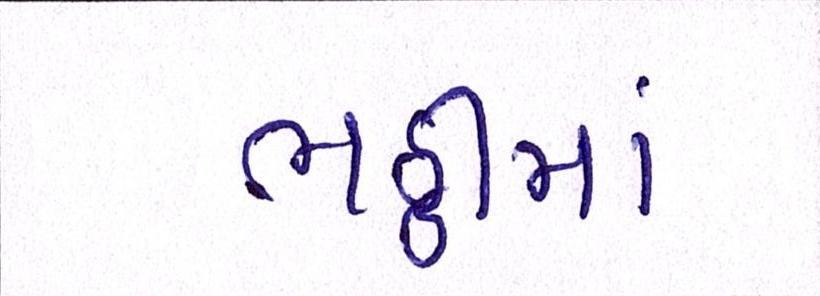 ભઠ્ઠીમાં